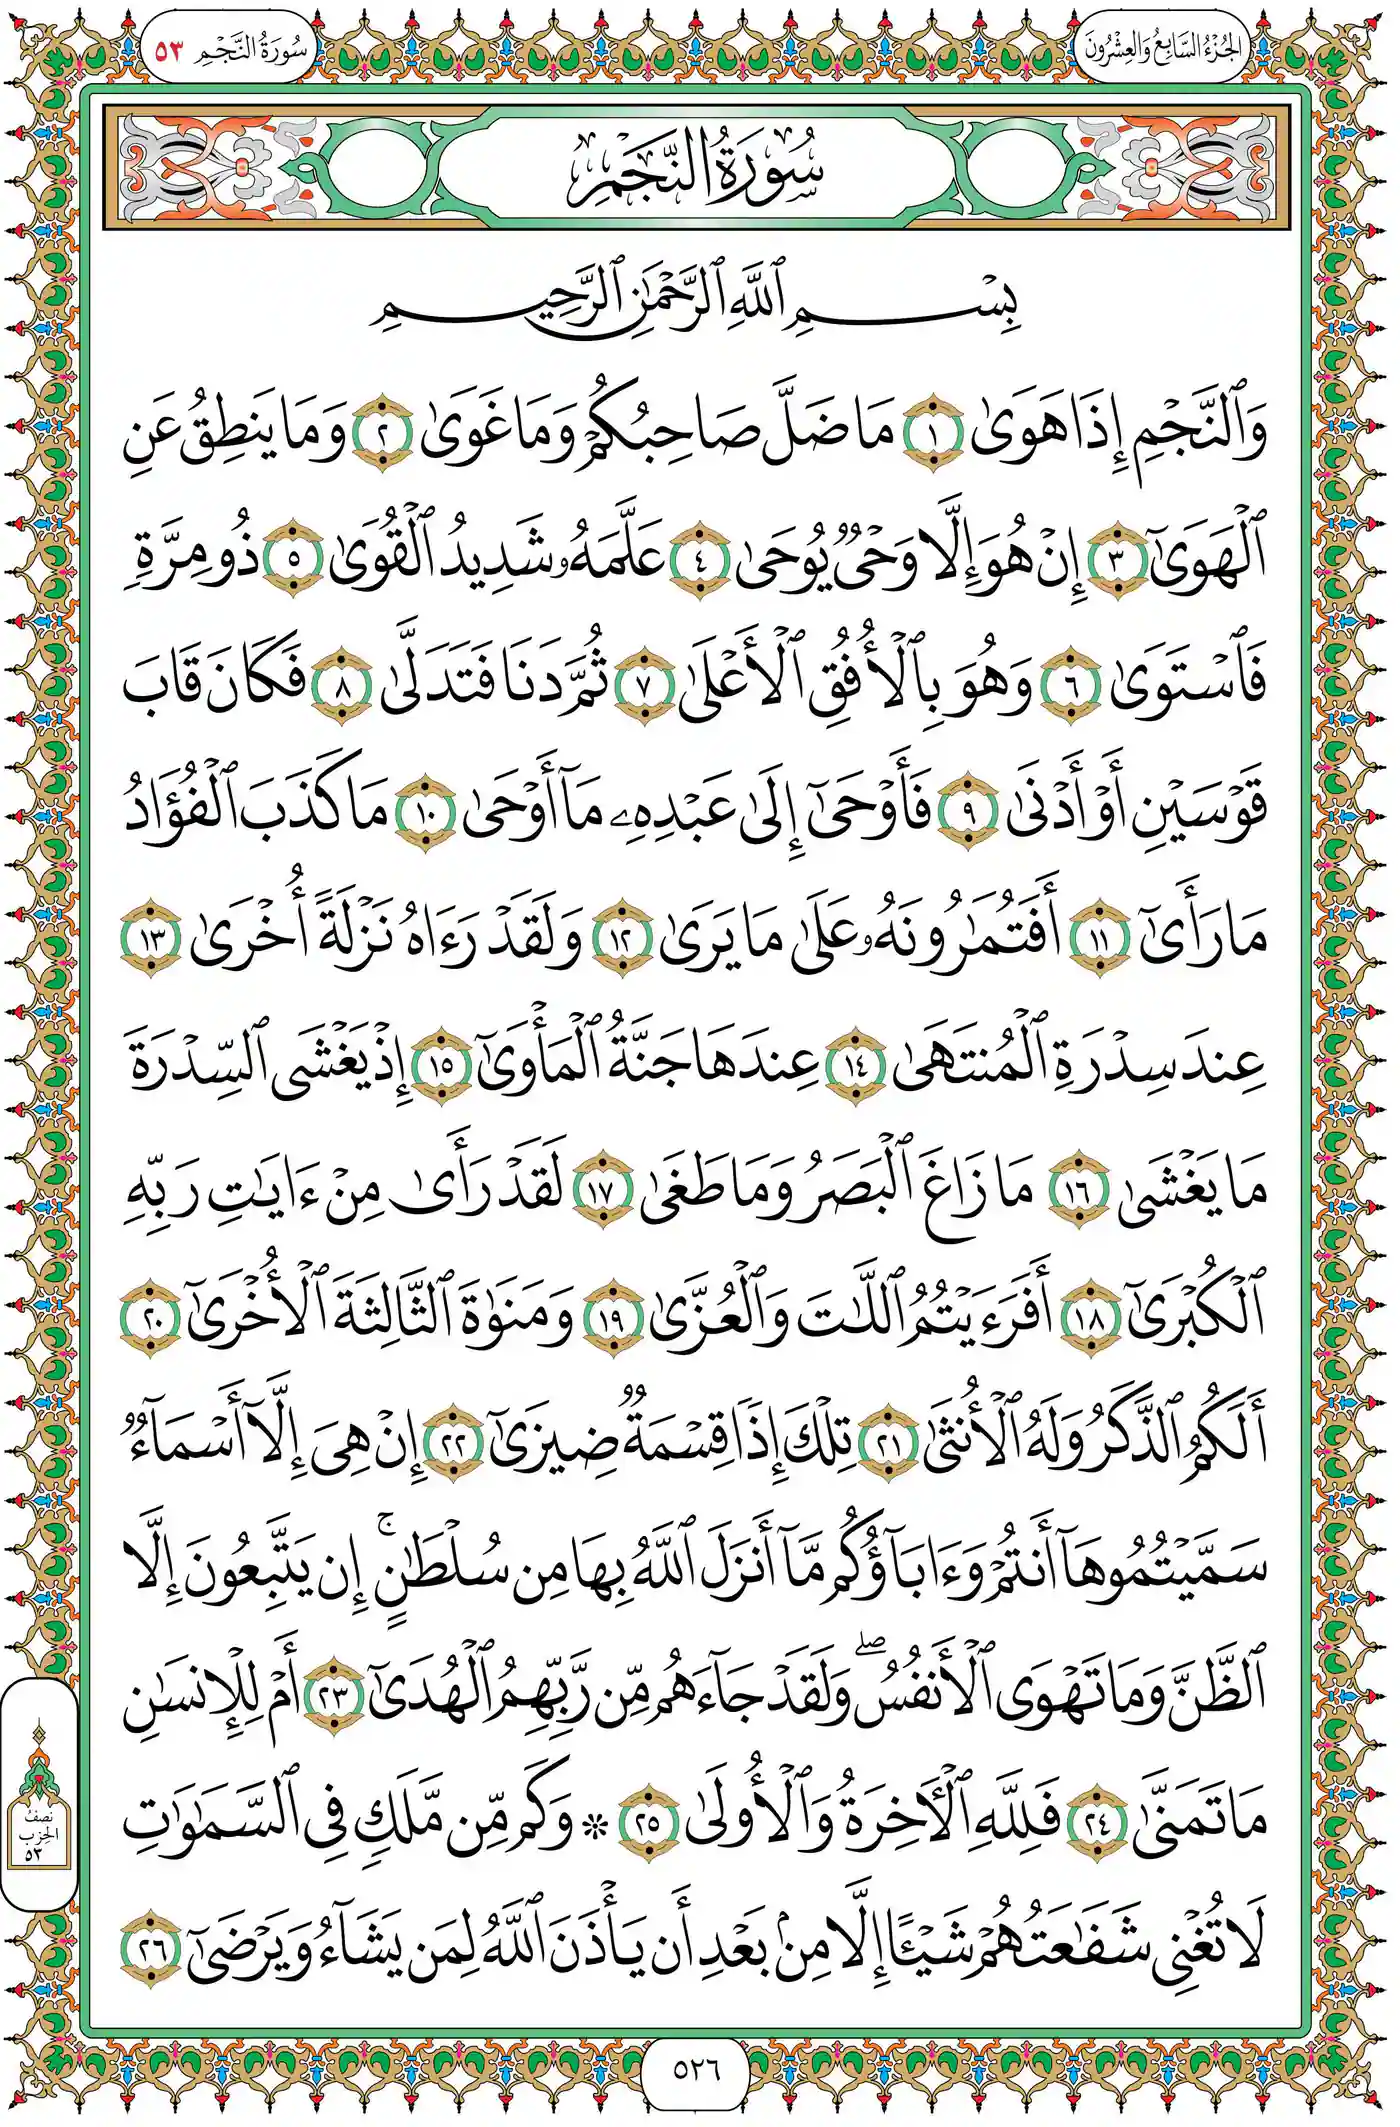 الجُزْءُ السَّابِعُ وَالعِشْرُونَ
سُورَةُ النَّجْمِ ٥٣
سُورَةُ النَّجْمِ
بِسْمِ ٱللَّهِ ٱلرَّحْمَٰنِ ٱلرَّحِيمِ
وَٱلنَّجْمِ إِذَا هَوَىٰ ١ مَا ضَلَّ صَاحِبُكُمْ وَمَا غَوَىٰ ٢ وَمَا يَنطِقُ عَنِ
ٱلْهَوَىٰٓ ٣ إِنْ هُوَ إِلَّا وَحْىٌ يُوحَىٰ ٤ عَلَّمَهُۥ شَدِيدُ ٱلْقُوَىٰ ٥ ذُو مِرَّةٍ
فَٱسْتَوَىٰ ٦ وَهُوَ بِٱلْأُفُقِ ٱلْأَعْلَىٰ ٧ ثُمَّ دَنَا فَتَدَلَّىٰ ٨ فَكَانَ قَابَ
قَوْسَيْنِ أَوْ أَدْنَىٰ ٩ فَأَوْحَىٰٓ إِلَىٰ عَبْدِهِۦ مَآ أَوْحَىٰ ١٠ مَا كَذَبَ ٱلْفُؤَادُ
مَا رَأَىٰٓ ١١ أَفَتُمَٰرُونَهُۥ عَلَىٰ مَا يَرَىٰ ١٢ وَلَقَدْ رَءَاهُ نَزْلَةً أُخْرَىٰ ١٣
عِندَ سِدْرَةِ ٱلْمُنتَهَىٰ ١٤ عِندَهَا جَنَّةُ ٱلْمَأْوَىٰٓ ١٥ إِذْ يَغْشَى ٱلسِّدْرَةَ
مَا يَغْشَىٰ ١٦ مَا زَاغَ ٱلْبَصَرُ وَمَا طَغَىٰ ١٧ لَقَدْ رَأَىٰ مِنْ ءَايَٰتِ رَبِّهِ
ٱلْكُبْرَىٰٓ ١٨ أَفَرَءَيْتُمُ ٱللَّٰتَ وَٱلْعُزَّىٰ ١٩ وَمَنَوٰةَ ٱلثَّالِثَةَ ٱلْأُخْرَىٰٓ ٢٠
أَلَكُمُ ٱلذَّكَرُ وَلَهُ ٱلْأُنثَىٰ ٢١ تِلْكَ إِذًا قِسْمَةٌ ضِيزَىٰٓ ٢٢ إِنْ هِىَ إِلَّآ أَسْمَآءٌ
سَمَّيْتُمُوهَآ أَنتُمْ وَءَابَآؤُكُم مَّآ أَنزَلَ ٱللَّهُ بِهَا مِن سُلْطَٰنٍ ۚ إِن يَتَّبِعُونَ إِلَّا
ٱلظَّنَّ وَمَا تَهْوَى ٱلْأَنفُسُ ۖ وَلَقَدْ جَآءَهُم مِّن رَّبِّهِمُ ٱلْهُدَىٰٓ ٢٣ أَمْ لِلْإِنسَٰنِ
مَا تَمَنَّىٰ ٢٤ فَلِلَّهِ ٱلْءَاخِرَةُ وَٱلْأُولَىٰ ٢٥ * وَكَم مِّن مَّلَكٍ فِى ٱلسَّمَٰوَٰتِ
لَا تُغْنِى شَفَٰعَتُهُمْ شَيْـًٔا إِلَّا مِنۢ بَعْدِ أَن يَأْذَنَ ٱللَّهُ لِمَن يَشَآءُ وَيَرْضَىٰٓ ٢٦
نِصْفُ
الحِزب
٥٣
٥٢٦